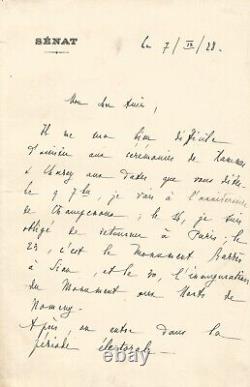 SÉNAT
le 7/IX/28.
Mon cher Amis,
Il me sera bien difficile
d'assister aux cérémonies de
& Charey aux dates que vous dites
le 9 7bre, je vais à l'anniversaire
de ; le 16, je suis
obligé de retourner à Paris ; le
23, c'est le Monument Barrès
à Sion, et le 30, l'inauguration
du Monument aux Morts de
Nomeny.
Après, on entre dans la
période électorale
© 123rf.com